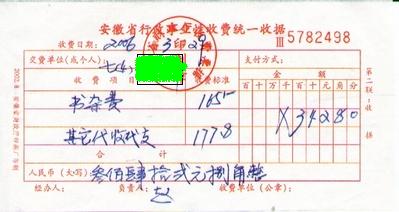 安徽省行政事业性收费统一收据
收费日期: 2006 3 29 Ⅲ5782498
交费单位(或个人) 七(4) 支付方式:
收费项目 收费标准 金额
百十万千百十元角分
书杂费 165 ¥34280
其它代收代支 177.8
人民币(大写) 叁佰肆拾贰元捌角整
经办人: 负责人: 赵 收费单位(公章):
第二联:收据